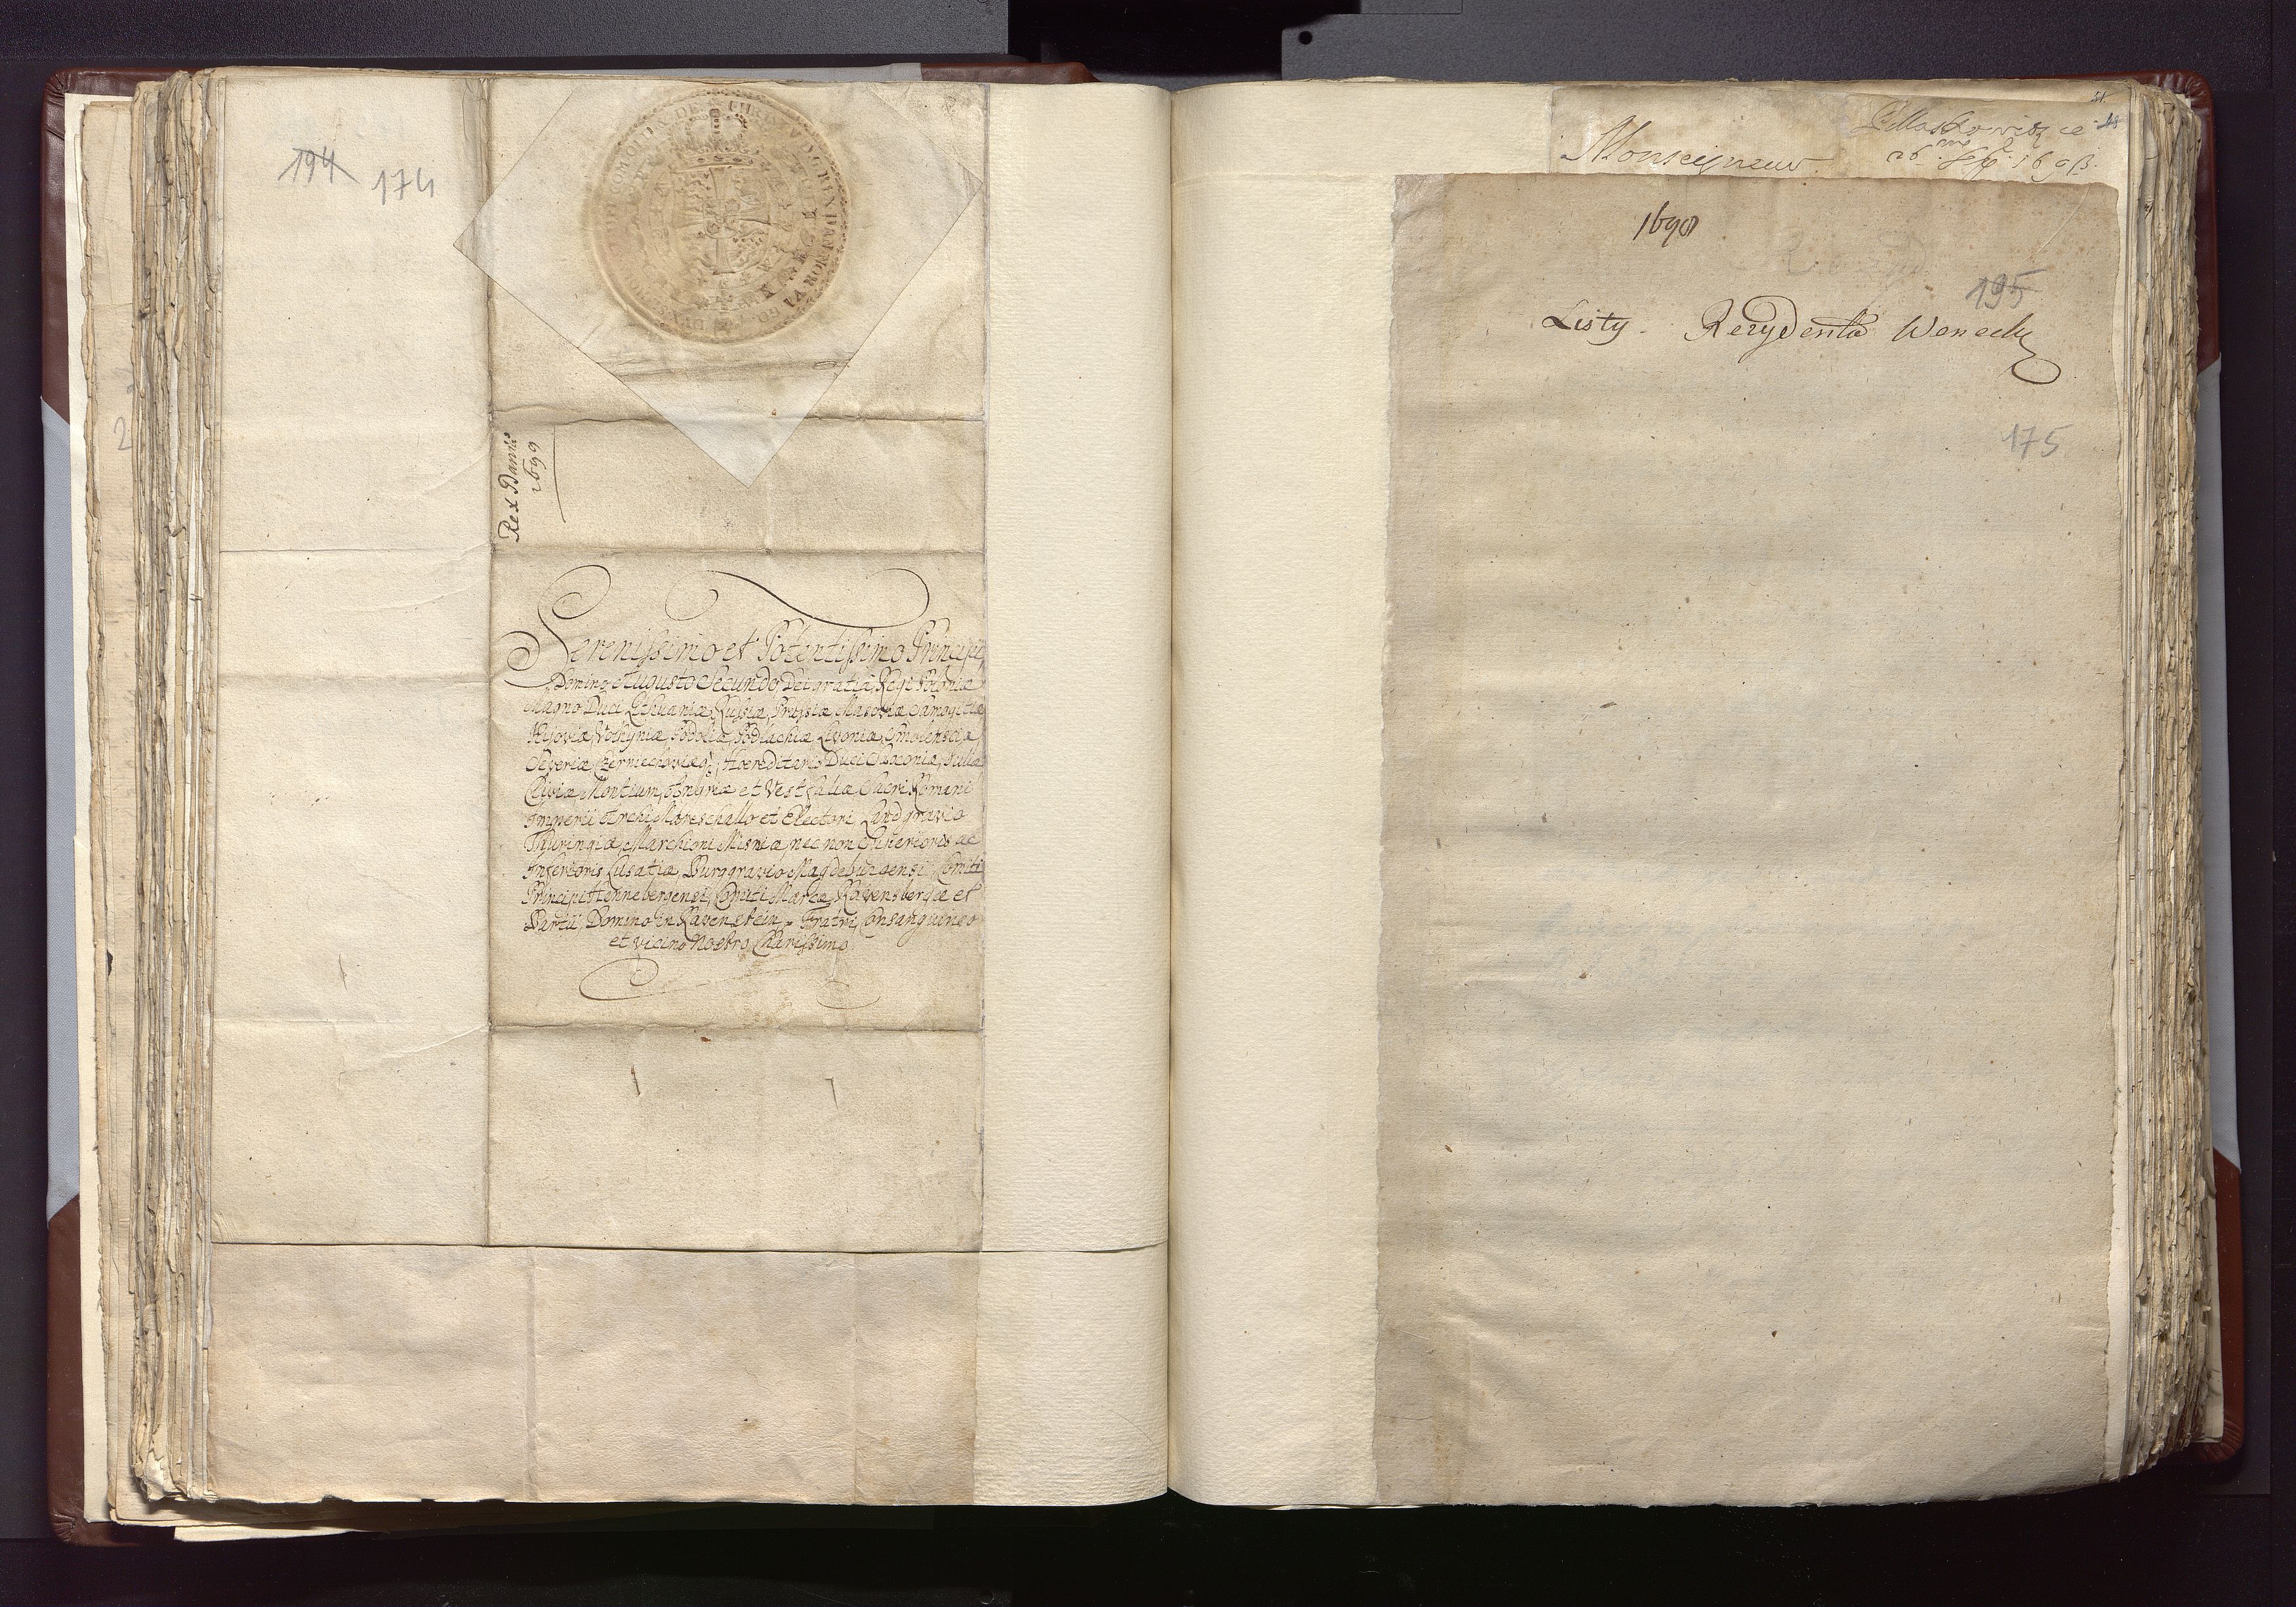 194 174
Rex Daniæ
1699
Serenissimo et Potentissimo Principi,
Domino Augusto Secundo Dei gratia Regi Poloniæ
Magno Duci Lithuaniæ, Russiæ, Prussiæ Masoviæ Samogitiæ
Kijoviæ, Volhyniæ Podoliæ, Podlachiæ, Livoniæ, Smolensciæ
Severiæ Czerniechoviæq;, Hoereditario Duci Saxoniæ, Juliæ
Cliviæ Montium, Angriæ et Vestfaliæ Sacri Romani
Imperii Archi Mareschallo et Electori, Landgravio
Thuringiæ, Marchioni Misniæ, nec non Superioris ac
Inferioris Lusatiæ, Burggravio Magdeburgensi, Comiti
Principi Hennebergensi, Comiti Marcæ, Ravensbergæ et
Bartii, Domino in Ravenstein, Fratri, Consanguineo
et vicino Nostro Charissimo
51.
48
Monseigneur
26
1698
195
Listy. Rezydenta Weneck
175